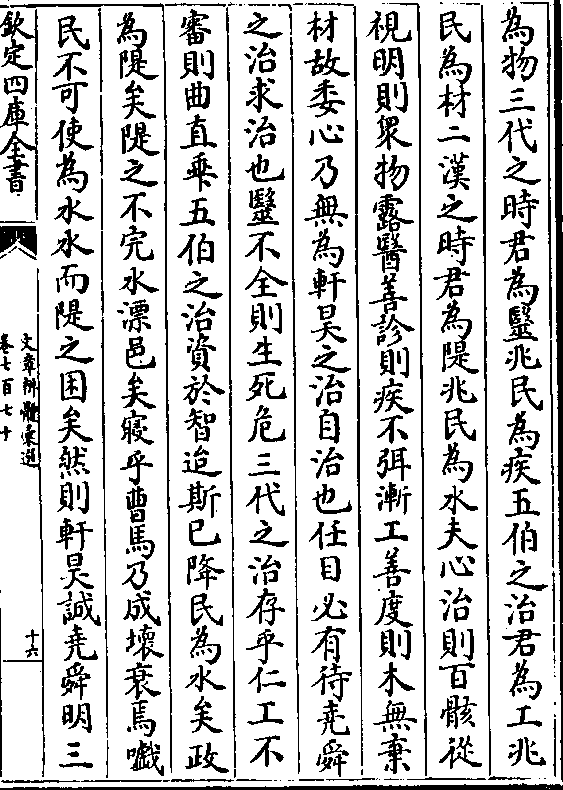 為物三代之時君為毉兆民為疾五伯之治君為工兆
民為材二漢之時君為隄兆民為水夫心治則百骸從
視明則衆物露醫善診則疾不弭漸工善度則木無棄
材故委心乃無為軒昊之治自治也任目必有待堯舜
之治求治也毉不全則生死危三代之治存乎仁工不
審則曲直乖五伯之治資於智迨斯已降民為水矣政
為隄矣隄之不完水漂邑矣寖乎曹馬乃成壊衰馬嚱
民不可使為水水而隄之困矣然則軒昊誠堯舜明三
欽定四庫全書
文章辨體彙選
卷七百七十
十六